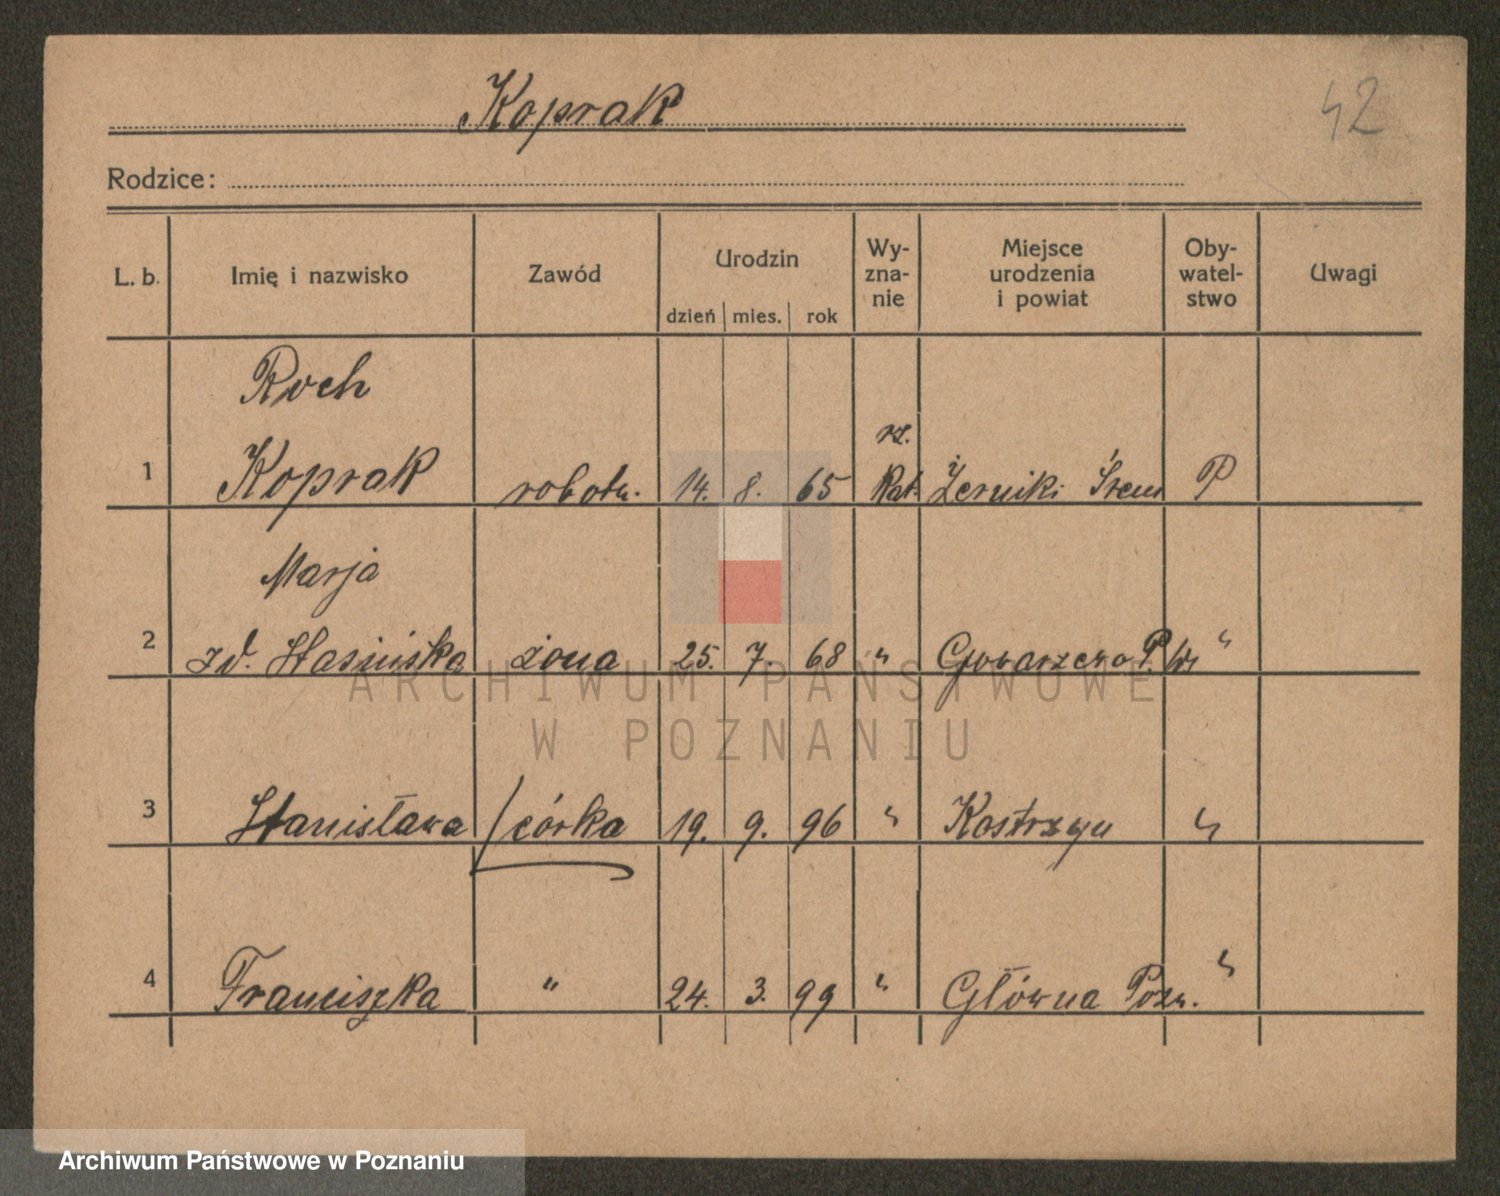 Koprak
42
Rodzice:
L. b. Imię i nazwisko Zawód Urodzin dzień mies. rok Wy-zna-nie Miejsce urodzenia i powiat Oby-watel-stwo Uwagi
Roch
rz.
1 Koprak robotn. 14. 8. 65 Kat. Żerniki Śrem P
Marja
2 zd. Stasińska żona 25. 7. 68 " Gowarzewo P. "
3 Stanisława / córka 19. 9. 96 " Kostrzyn "
4 Franciszka " 24. 3. 99 " Główna Pozn. "
ARCHIWUM PAŃSTWOWE
W POZNANIU
Archiwum Państwowe w Poznaniu